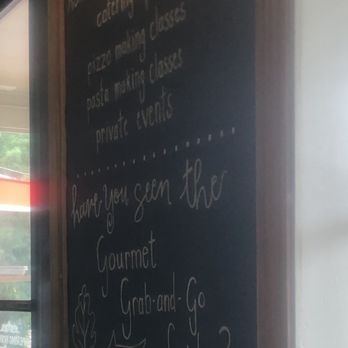 catering
pizza making classes
pasta making classes
private events
have you seen the
Gourmet
Grab-and-Go